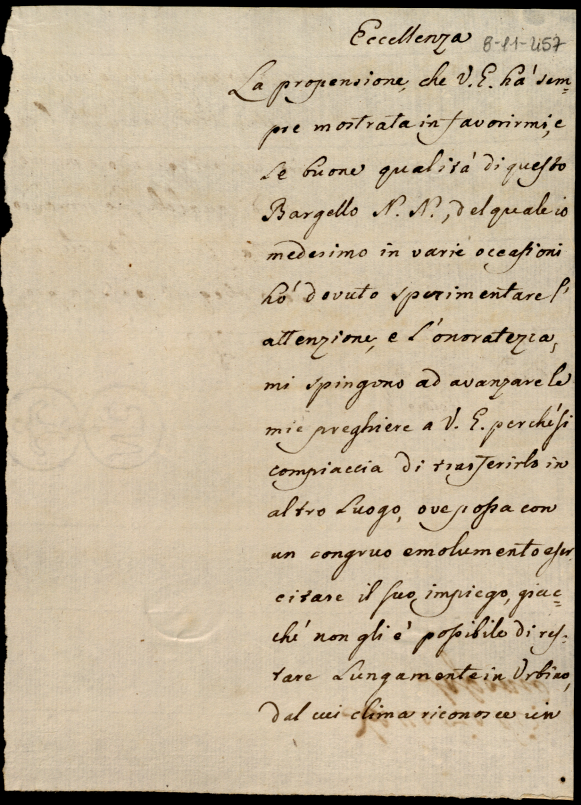 Eccellenza 8-11-457
La propensione, che V. E. há sem=
pre mostrata in favorirmi, e
le buone qualitá di questo
Bargello N. N., del quale io
medesimo in varie occasioni
hó dovuto sperimentare l'
attenzione, e l'onoratezza,
mi spingono ad avanzare le
mie preghiere a V. E. perché si
compiaccia di trasferirlo in
altro Luogo, ove possa con
un congruo emolumento eser
citare il suo impiego, giac=
ché non gli é possibile di res-
tare Lungamente in Urbino,
dal cui clima riconosce un